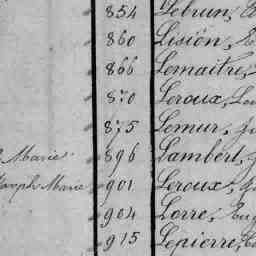 854 Lebrun,
860 Lisiën,
866 Lemaitre,
870 Leroux,
875 Lemur,
Marie 896 Lambert,
Joseph Marie 901 Leroux,
904 Lorre, Eug
915 Lepierre,